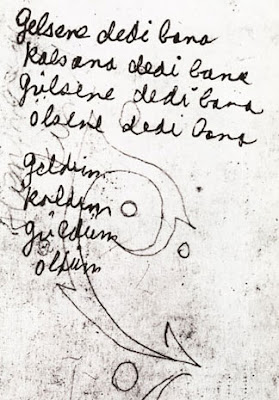 Gelsene dedi bana
kalsana dedi bana
gülsene dedi bana
ölsene dedi bana
geldim
kaldım
güldüm
öldüm